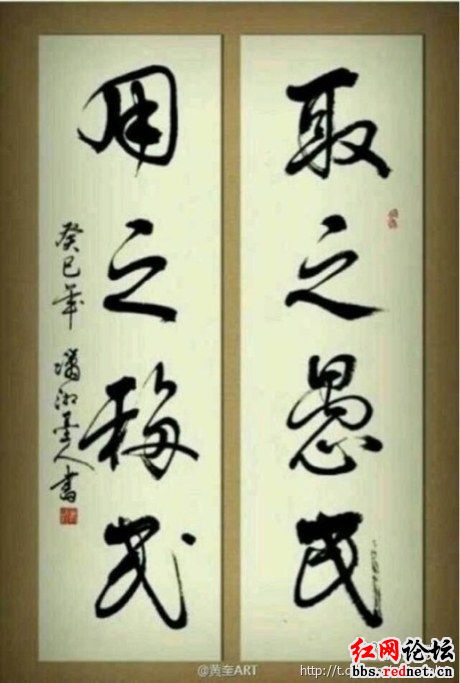 取之愚民
用之移民
癸巳年 湘墨人书
@黄奎ART
红网论坛
bbs.rednet.cn
http://t.